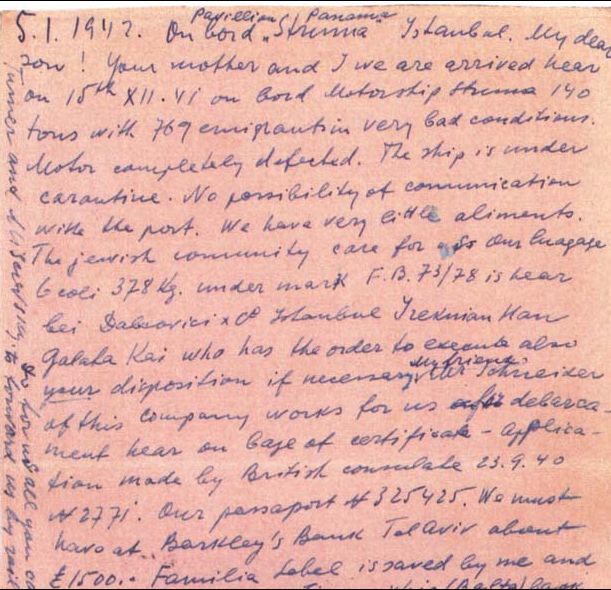 Pavillion Panama
5.1.1942. On bord "Struma" Istanbul. My dear
son! Your mother and I we are arrived hear
on 15th XII.41 on bord Motorship Struma 140
tons with 769 emigrants in very bad conditions.
Motor completely defected. The ship is under
carantine. No possibility of communication
with the port. We have very little aliments.
The jewish community care for us. Our lugage
6 coli 378 Kg. under mark F.B. 73/78 is hear
bei Dabcovici & Co Istanbul Han
Galata Kai who has the order to execute also
my friend
your disposition if necessary. Mr Schneider
of this company works for us debarca-
ment hear on base of certificate - applica-
tion made by British consulate 23.9.40
N 2771. Our passaport N 325425. We must
have at Barkley's Bank Tel Aviv about
£1500.- Familia Label is saved by me and
(Balta) back
Do for us all you can
to forward us by rail